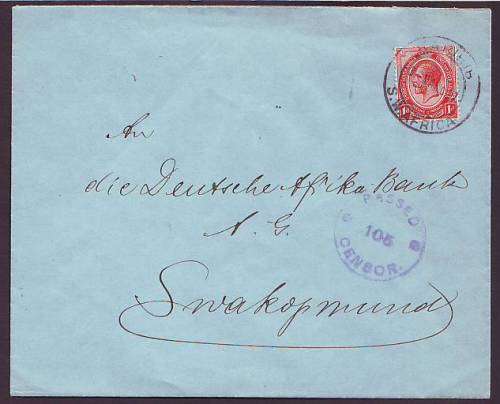 S.W. AFRICA
An
die Deutsche Afrika Bank
A. G.
PASSED
105
CENSOR.
Swakopmund